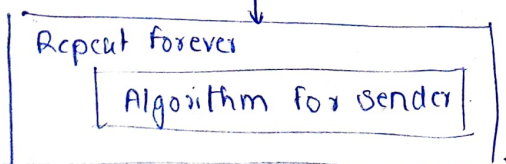 Repeat forever
Algorithm for sender